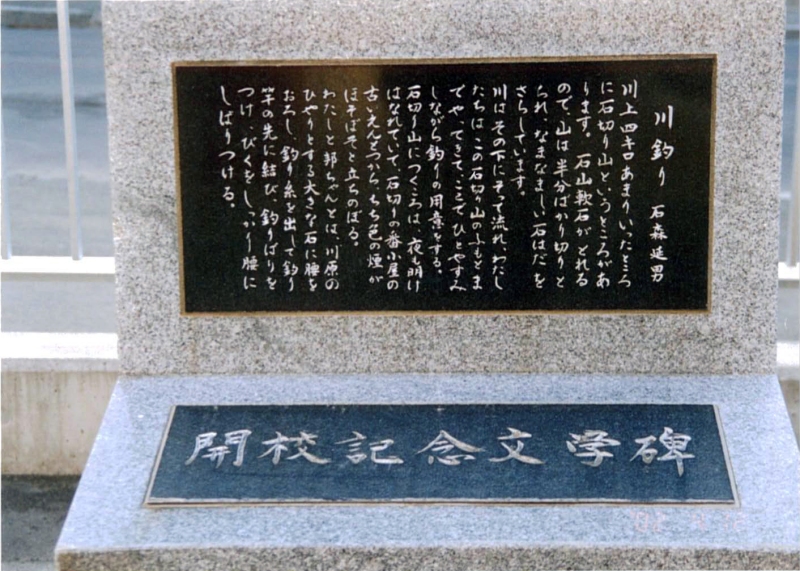 川釣り 石森延男
川上四キロあまりいったところ
に石切り山というところがあ
ります。石山軟石がとれる
ので、山は半分ばかり切りと
られ、なまなましい石はだを
さらしています。
川はその下にそって流れ、わたし
たちは、この石切り山のふもとま
でやってきて、ここでひとやすみ
しながら釣りの用意をする。
石切り山につくころは、夜も明け
はなれていて、石切りの番小屋の
古いえんとつから、もち色の煙が
ほそぼそと立ちのぼる。
わたしと邦ちゃんとは、川原の
ひやりとする大きな石に腰を
おろし、釣り糸を出して釣り
竿の先に結び、釣りばりを
つけ、びくをしっかり腰に
しばりつける。
開校記念文学碑